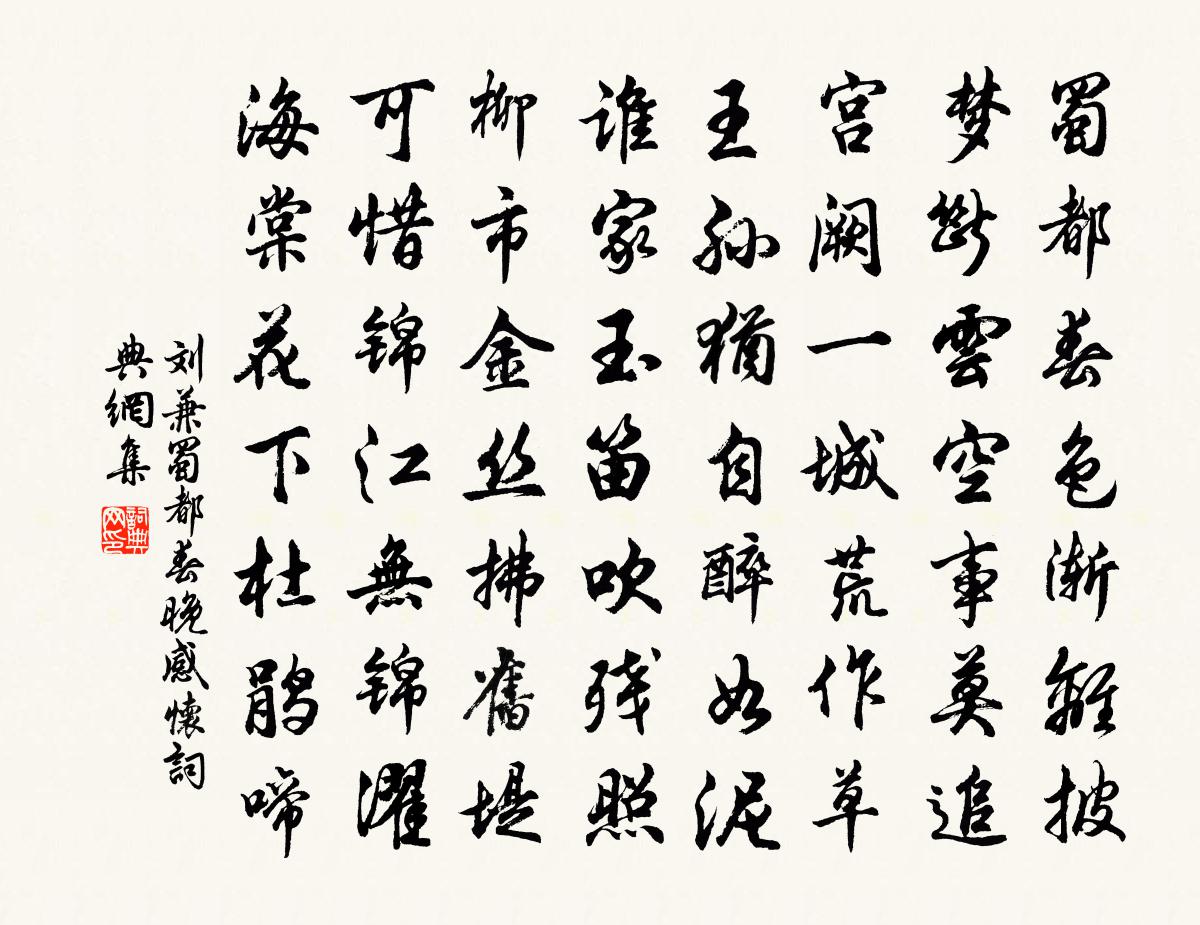 蜀都春色渐離披
梦断雲空事莫追
宫阙一城荒作草
王孙猶自醉如泥
谁家玉笛吹残照
柳市金丝拂舊堤
可惜锦江無锦濯
海棠花下杜鹃啼
刘兼蜀都春晚感懷詞
典網集
詞典
网印